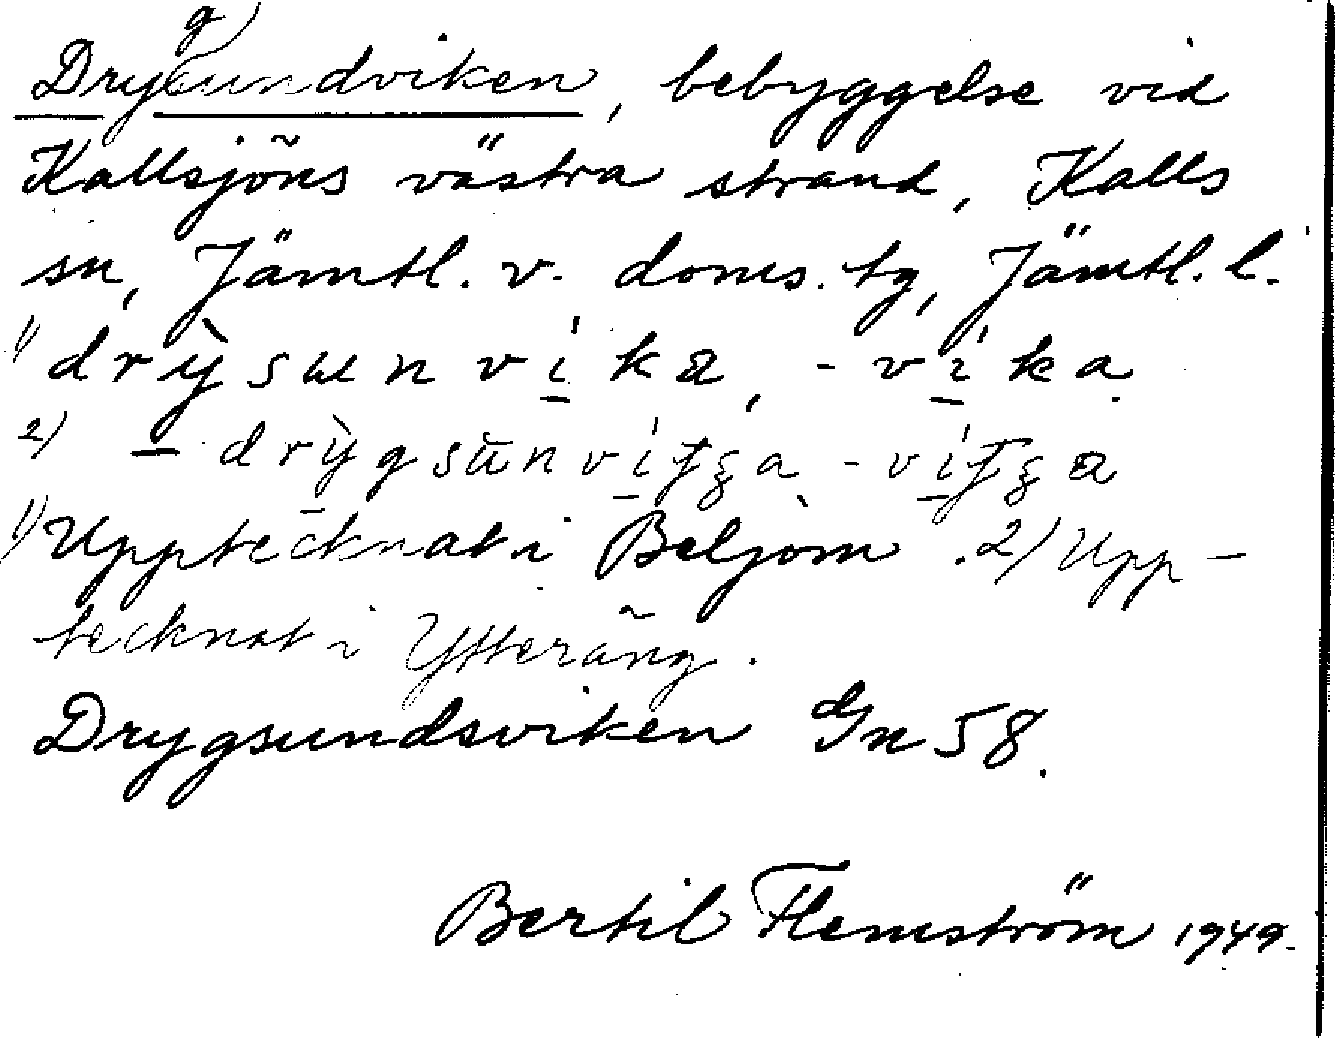 Dry(g)sundviken, bebyggelse vid
Kallsjöns västra strand, Kalls
sn, Jämtl. v. doms. tg, Jämtl. l.
1) drỳsunvika, -vika
2) – drỳgsun
1) Upptecknat i Beljom. 2) Upp-
tecknat i Ytteräng.
Drygsundsviken Gn 58.
Bertil Flemström 1949.